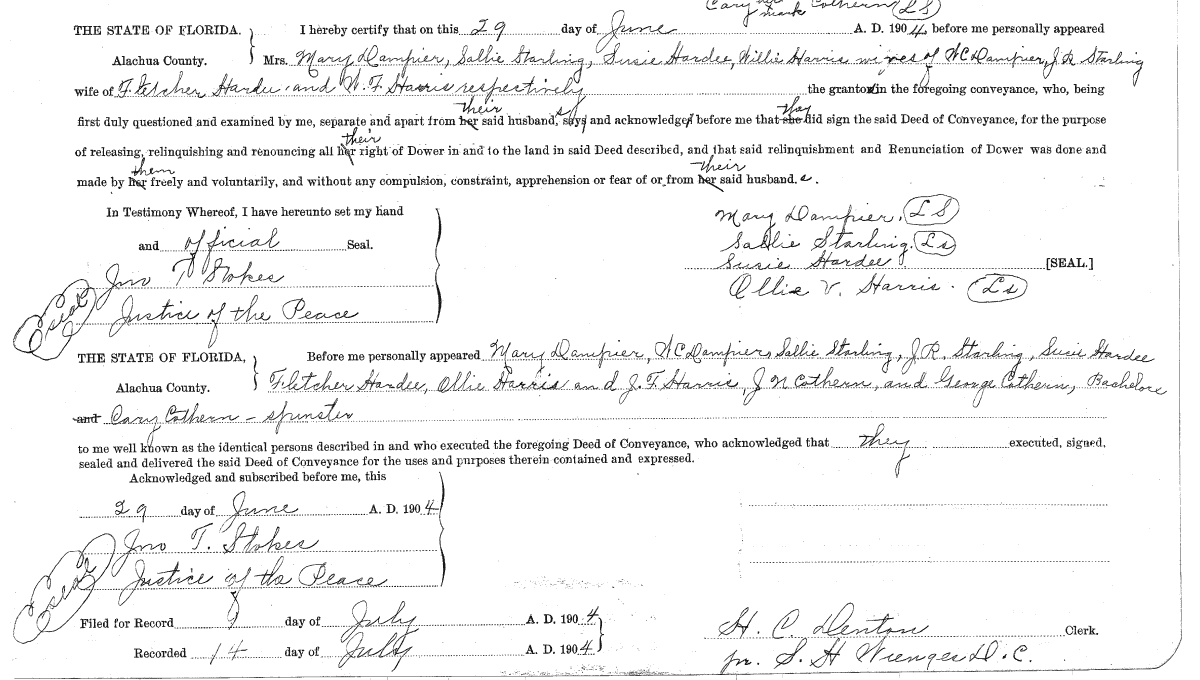 Cary her mark Cothern (LS)
THE STATE OF FLORIDA. I hereby certify that on this 29 day of June A. D. 1904, before me personally appeared
Alachua County. Mrs. Mary Dampier, Sallie Starling, Susie Hardee, Willie Harris wives of W C Dampier, J. R Starling
wife of Fletcher Hardee and W. F. Harris respectively the grantors in the foregoing conveyance, who, being
their sy they
first duly questioned and examined by me, separate and apart from her said husband, says and acknowledges before me that she did sign the said Deed of Conveyance, for the purpose
their
of releasing, relinquishing and renouncing all her right of Dower in and to the land in said Deed described, and that said relinquishment and Renunciation of Dower was done and
them their
made by her freely and voluntarily, and without any compulsion, constraint, apprehension or fear of or from her said husband.s.
In Testimony Whereof, I have hereunto set my hand
and official Seal.
Jno T Stokes
Seal
Justice of the Peace
Mary Dampier. (LS)
Sallie Starling. (Ls)
Susie Hardee. [SEAL.]
Ollie V. Harris. (Ls)
THE STATE OF FLORIDA, Before me personally appeared Mary Dampier, W C Dampier, Sallie Starling, J. R. Starling, Susie Hardee
Alachua County. Fletcher Hardee, Ollie Harris and J. F. Harris, J N Cothern, and George Cothern, Bachelors
and Cary Cothern - spinster
to me well known as the identical persons described in and who executed the foregoing Deed of Conveyance, who acknowledged that they executed, signed,
sealed and delivered the said Deed of Conveyance for the uses and purposes therein contained and expressed.
Acknowledged and subscribed before me, this
29 day of June A. D. 1904
Jno T. Stokes
Seal
Justice of the Peace
Filed for Record day of July A. D. 1904
Recorded 14 day of July A. D. 1904
H. C. Denton Clerk.
pr. S. H Wienges D. C.